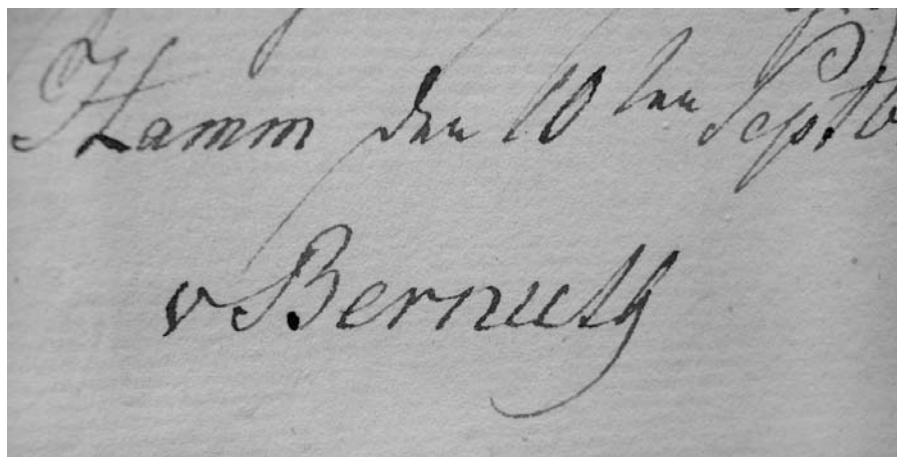 Hamm den 10ten Septb
v Bernuth